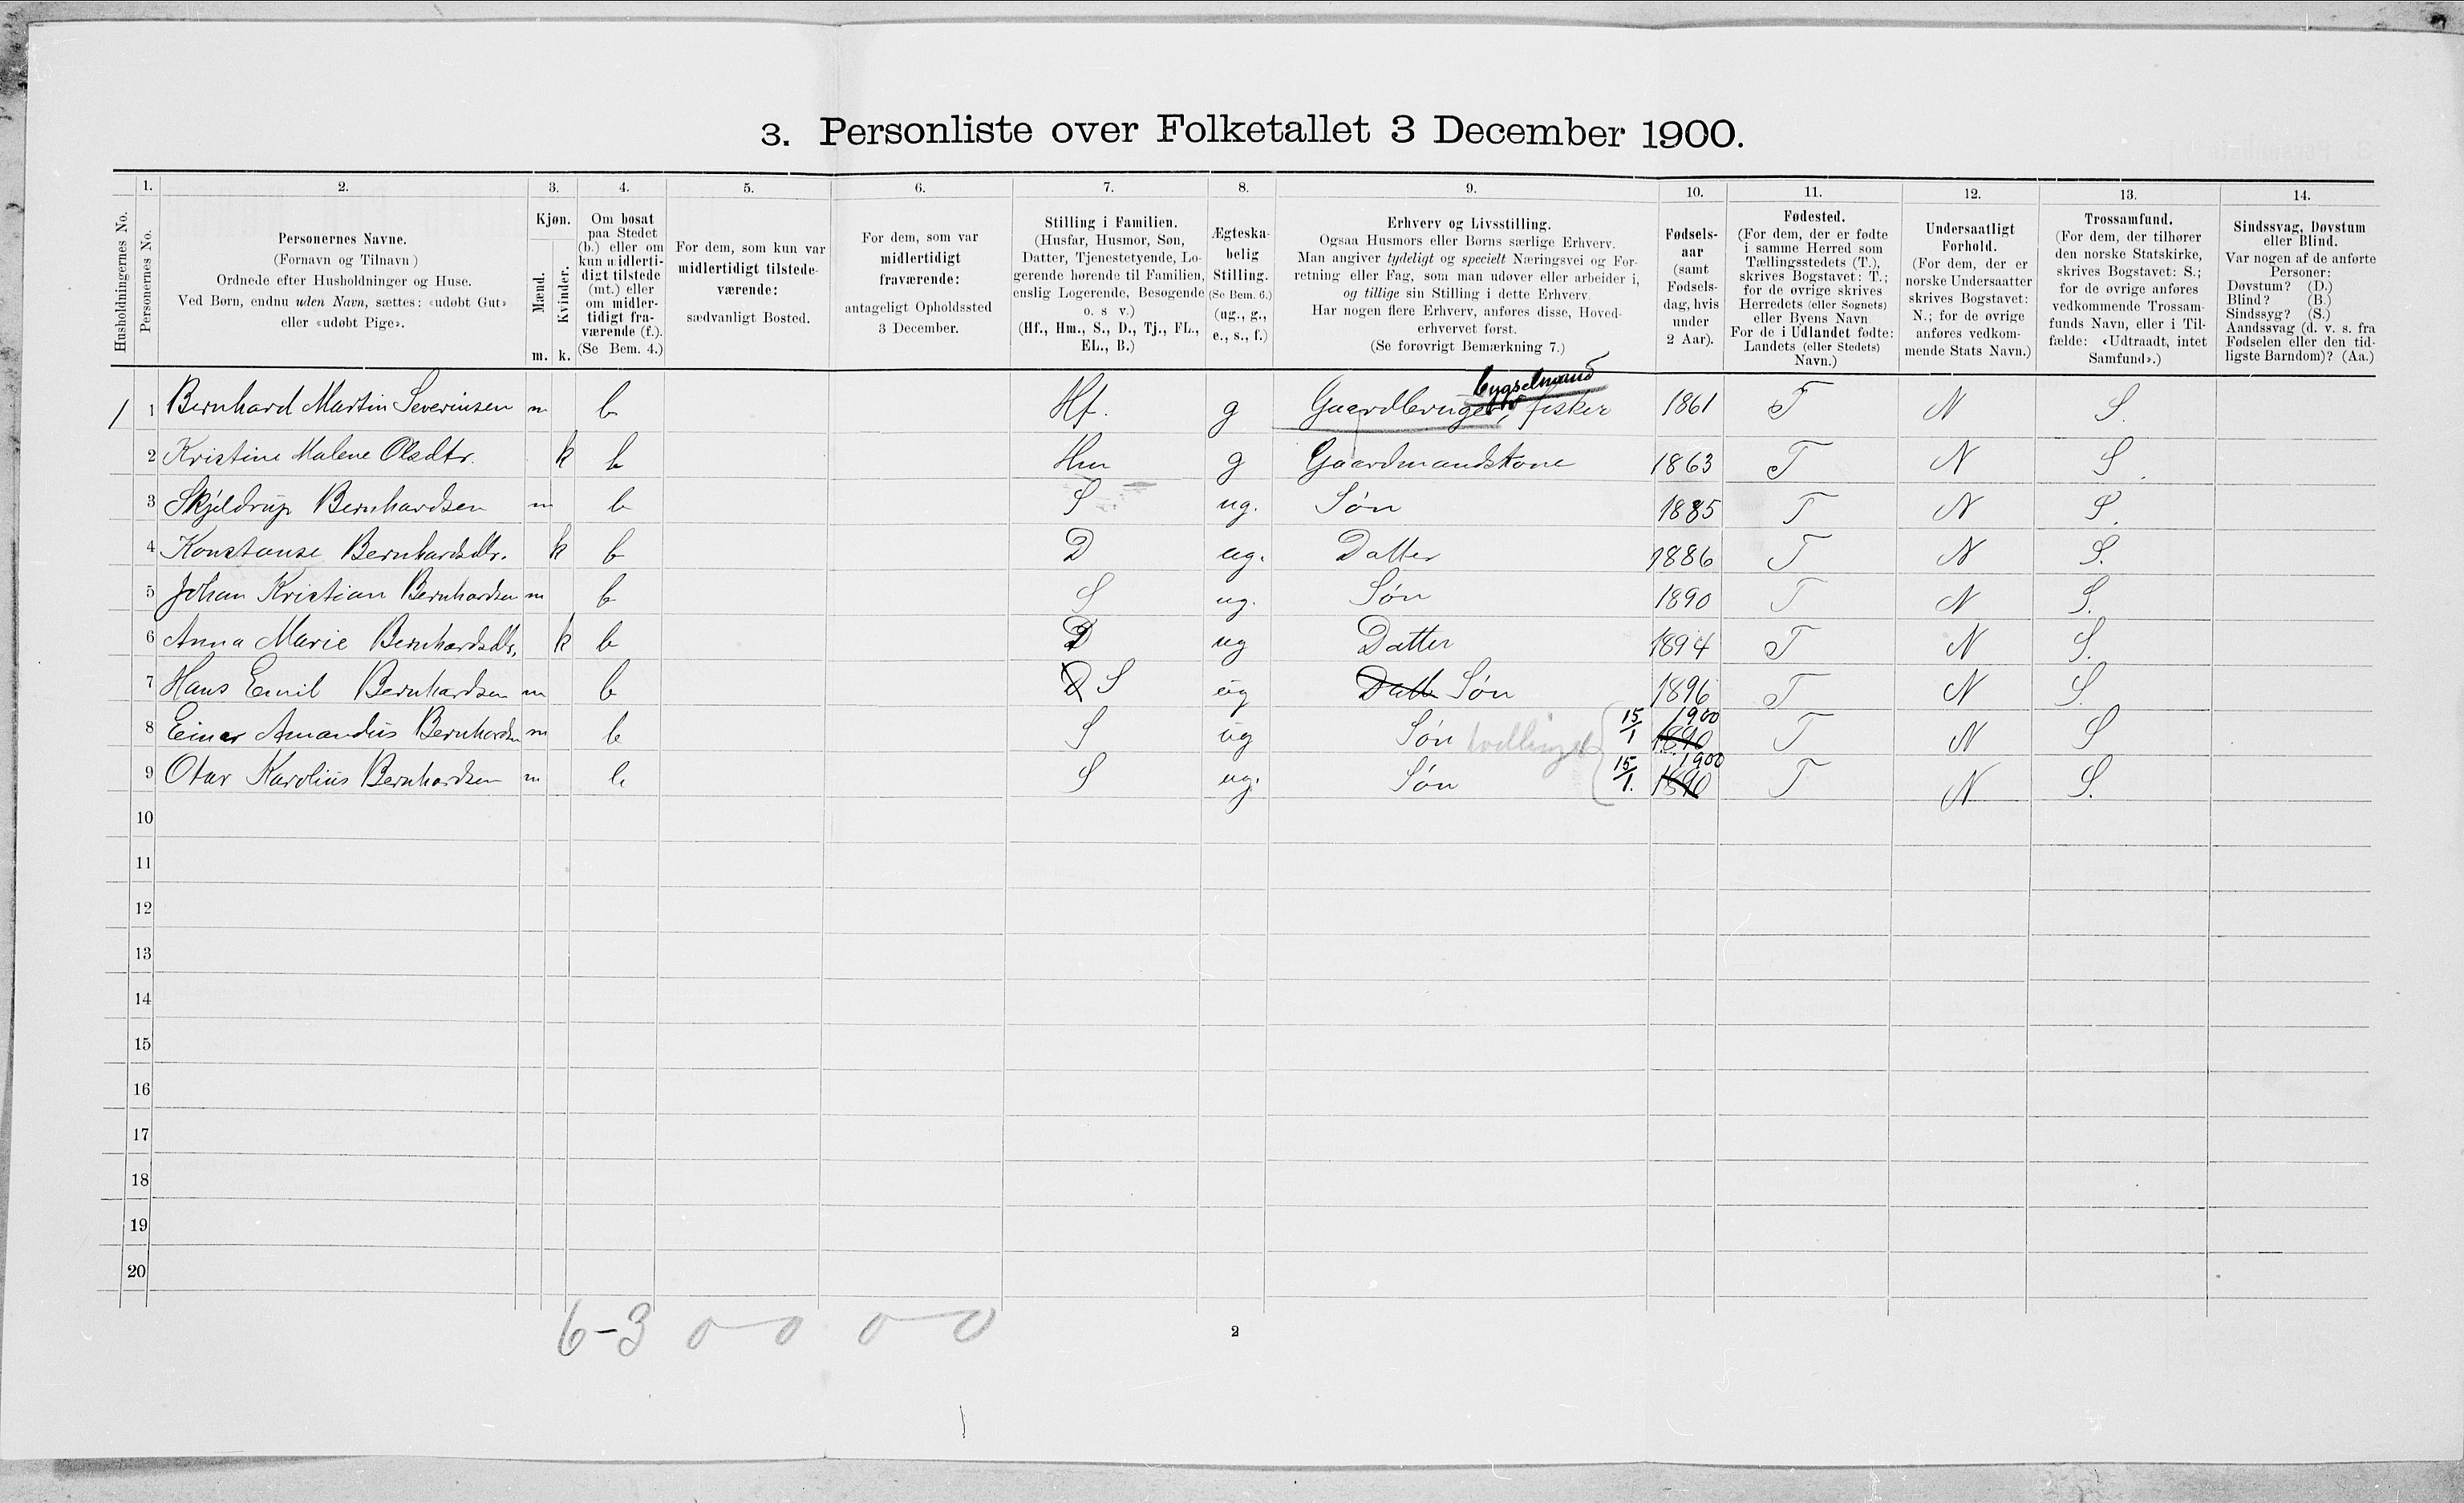 3. Personliste over Folketallet 3 December 1900.
Husholdningernes No.
1.
Personernes No.
2.
Personernes Navne.
(Fornavn og Tilnavn)
Ordnede efter Husholdninger og Huse.
Ved Børn, endnu uden Navn, sættes: «udøbt Gut»
eller «udøbt Pige».
3.
Kjøn.
Mænd.
Kvinder.
m. k.
4.
Om bosat
paa Stedet
(b.) eller om
kun midlerti-
digt tilstede
(mt.) eller
om midler-
tidigt fra-
værende (f.).
(Se Bem. 4.)
5.
For dem, som kun var
midlertidigt tilstede-
værende:
sædvanligt Bosted.
6.
For dem, som var
midlertidigt
fraværende:
antageligt Opholdssted
3 December.
7.
Stilling i Familien.
(Husfar, Husmor, Søn,
Datter, Tjenestetyende, Lo-
gerende hørende til Familien,
enslig Logerende, Besøgende
o. s v.)
(Hf., Hm., S., D., Tj., FL.,
EL., B.)
8.
Ægteska-
belig
Stilling.
(Se Bem. 6.)
(ug., g.,
e., s., f.)
9.
Erhverv og Livsstilling.
Ogsaa Husmors eller Børns særlige Erhverv.
Man angiver tydeligt og specielt Næringsvei og For-
retning eller Fag, som man udøver eller arbeider i,
og tillige sin Stilling i dette Erhverv.
Har nogen flere Erhverv, anføres disse, Hoved-
erhvervet først.
(Se forøvrigt Bemærkning 7.)
10.
Fødsels-
aar
(samt
Fødsels-
dag, hvis
under
2 Aar).
11.
Fødested.
(For dem, der er fødte
i samme Herred som
Tællingsstedets (T.),
skrives Bogstavet: T.;
for de øvrige skrives
Herredets (eller Sognets)
eller Byens Navn
For de i Udlandet fødte:
Landets (eller Stedets)
Navn.)
12.
Undersaatligt
Forhold.
(For dem, der er
norske Undersaatter
skrives Bogstavet:
N.; for de øvrige
anføres vedkom-
mende Stats Navn.)
13.
Trossamfund.
(For dem, der tilhører
den norske Statskirke,
skrives Bogstavet: S.;
for de øvrige anføres
vedkommende Trossam-
funds Navn, eller i Til-
fælde: «Udtraadt, intet
Samfund».)
14.
Sindssvag, Døvstum
eller Blind.
Var nogen af de anførte
Personer:
Døvstum? (D.)
Blind? (B.)
Sindssyg? (S.)
Aandssvag (d. v. s. fra
Fødselen eller den tid-
ligste Barndom)? (Aa.)
bygselmand
1 1 Bernhard Martin Severinsen m b Hf. g Gaardbruger, fisker 1861 T N S.
2 Kristine Malene Olsdtr. k b Hm g Gaardmandskone 1863 T N S.
3 Skjeldrup Bernhardsen m b S ug. Søn 1885 T N S.
4 Konstanse Bernhardsdtr. k b D ug. Datter 1886 T N S.
5 Johan Kristian Bernhardsen m b S ug. Søn 1890 T N S.
6 Anna Marie Bernhardsdtr. k b D ug Datter 1894 T N S.
7 Hans Emil Bernhardsen m b D S ug Datt Søn 1896 T N S.
8 Einar Amandus Bernhardsen m b S ug Søn tvillinger 15/1 1900 1890 T N S
9 Otar Karolius Bernhardsen m b S ug. Søn 15/1. 1900 1890 T N S.
10
11
12
13
14
15
16
17
18
19
20
6-3 0 0 0 0
2